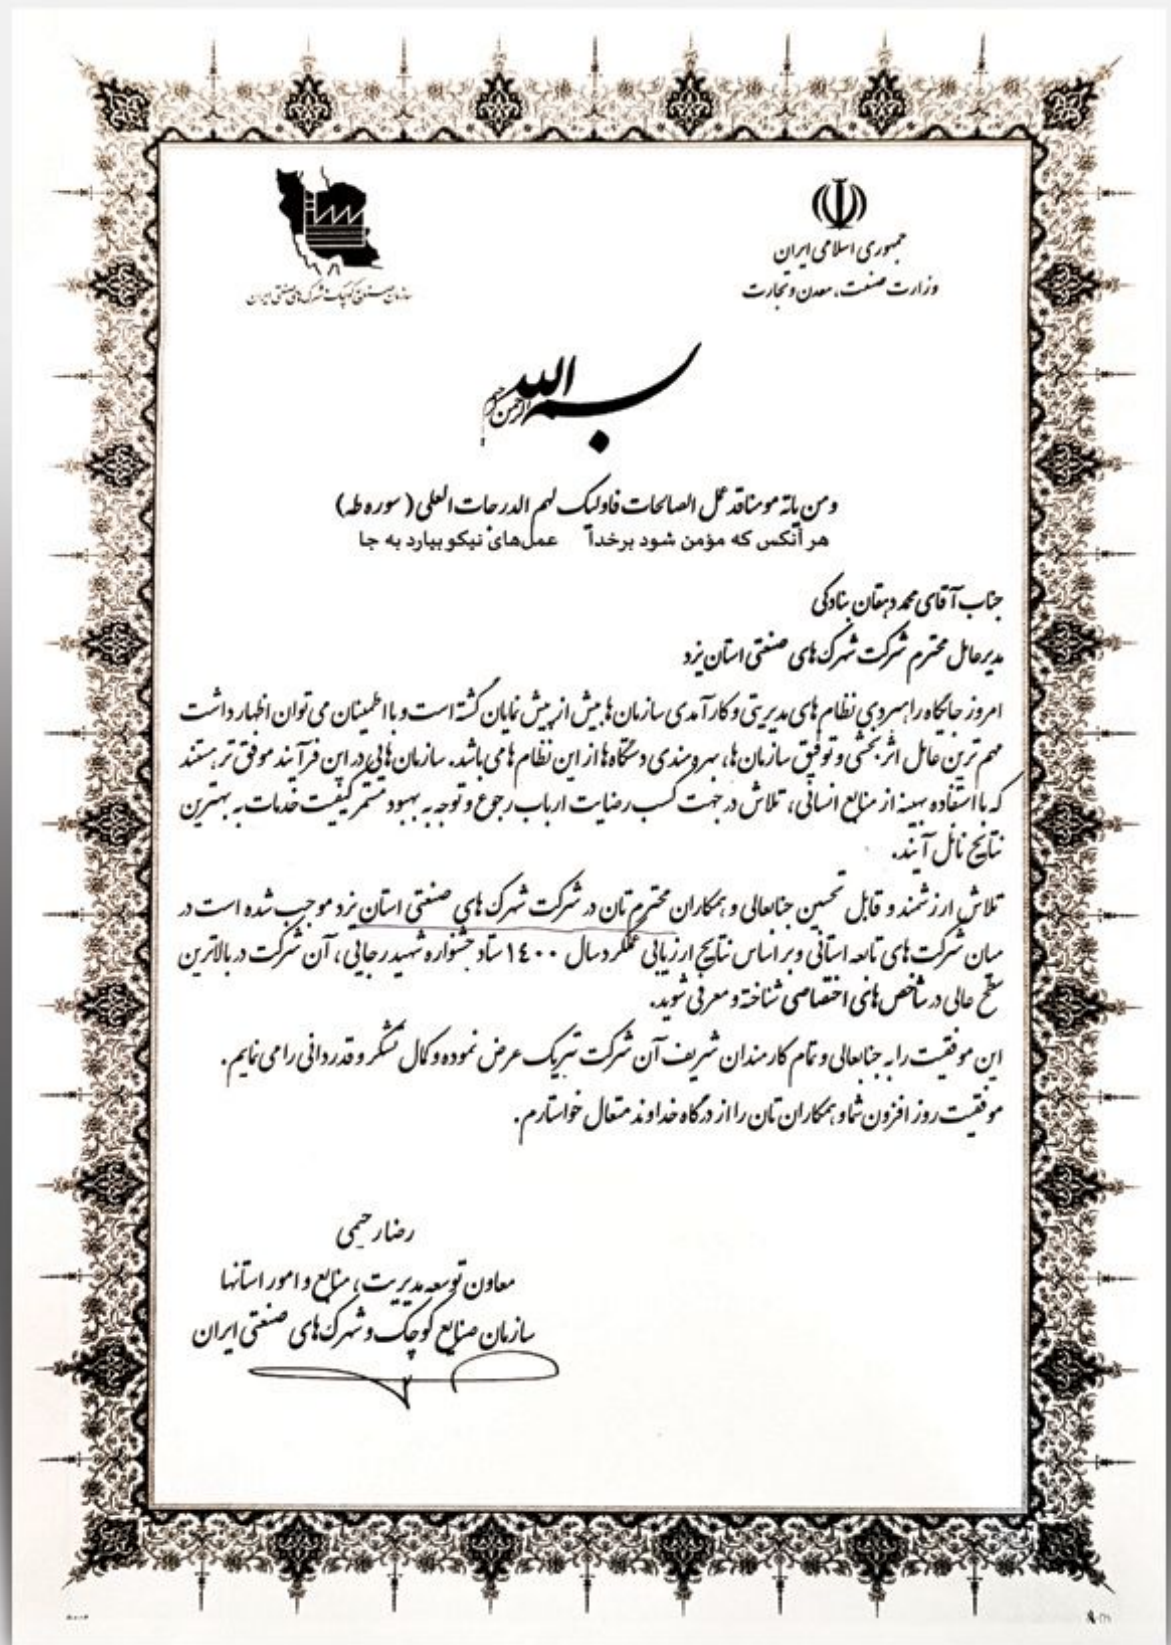 جمهوری اسلامی ایران
وزارت صنعت، معدن و تجارت
سازمان صنایع کوچک و شهرک های صنعتی ایران
بسم الله الرحمن الرحیم
ومن یاته مومنا قد عمل الصالحات فاولیک لهم الدرجات العلی ( سوره طه )
هر آنکس که مؤمن شود بر خدا عمل‌های نیکو بیارد به جا
جناب آقای محمد دهقان بنادکی
مدیرعامل محترم شرکت شهرک های صنعتی استان یزد
امروز جایگاه راهبردی نظام های مدیریتی و کارآمدی سازمان ها بیش از پیش نمایان گشته است و با اطمینان می توان اظهار داشت
مهم ترین عامل اثربخشی و توفیق سازمان ها، بهره مندی دستگاه ها از این نظام ها می باشد. سازمان هایی در این فرآیند موفق تر هستند
که با استفاده بهینه از منابع انسانی، تلاش در جهت کسب رضایت ارباب رجوع و توجه به بهبود مستمر کیفیت خدمات به بهترین
نتایج نائل آیند.
تلاش ارزشمند و قابل تحسین جنابعالی و همکاران محترم تان در شرکت شهرک های صنعتی استان یزد موجب شده است در
میان شرکت های تابعه استانی و بر اساس نتایج ارزیابی عملکرد سال ۱۴۰۰ ستاد جشنواره شهید رجایی، آن شرکت در بالاترین
سطح عالی در شاخص های اختصاصی شناخته و معرفی شوید.
این موفقیت را به جنابعالی و تمام کارمندان شریف آن شرکت تبریک عرض نموده و کمال تشکر و قدردانی را می نمایم.
موفقیت روز افزون شما و همکاران تان را از درگاه خداوند متعال خواستارم.
رضا رحیمی
معاون توسعه مدیریت، منابع و امور استانها
سازمان صنایع کوچک و شهرک های صنعتی ایران